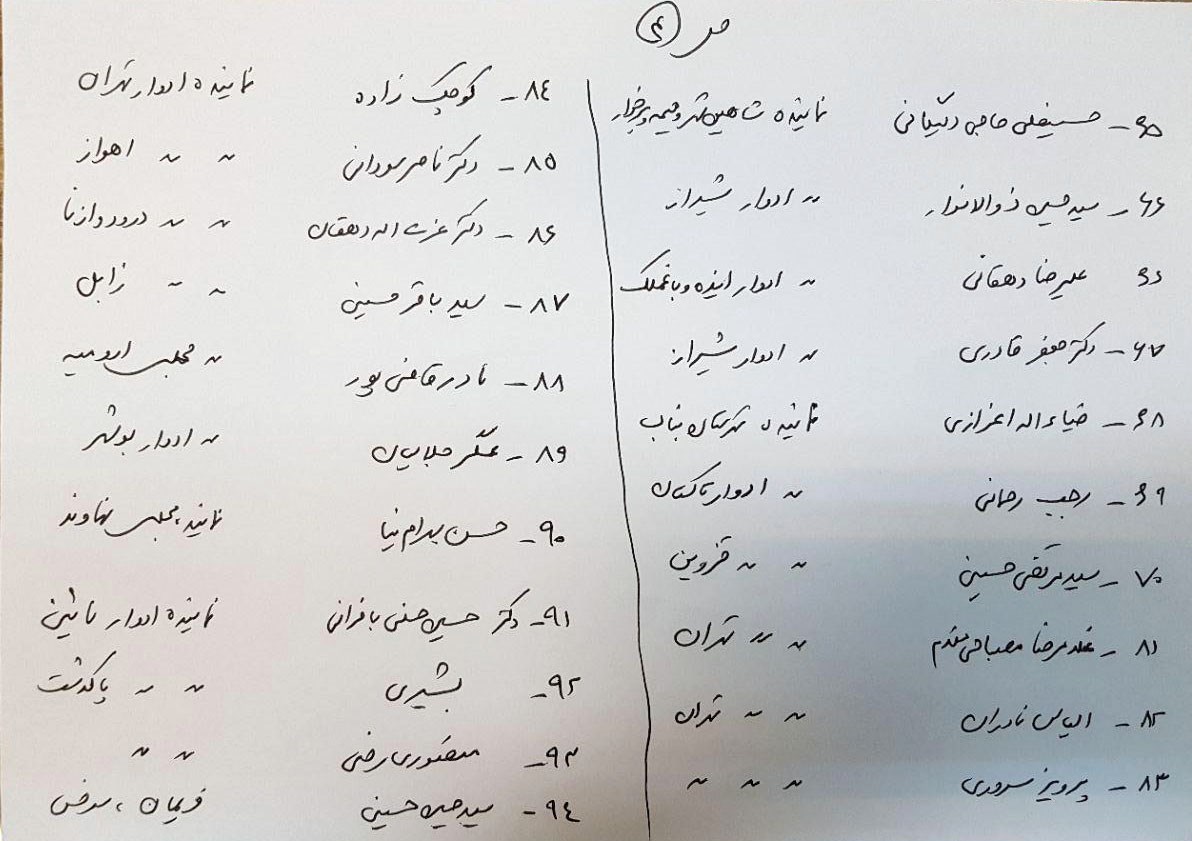 ص ٤
٦٥- حسینعلی حاجی دلیگانی نماینده شاهین شهر و میمه و برخوار
٦٦- سید حسین ذوالانوار 〃 ادوار شیراز
علیرضا دهقانی 〃 ادوار ایذه و باغملک
٦٧- دکتر جعفر قادری 〃 ادوار شیراز
٦٨- ضیاءاله اعزازی نماینده شهرستان بناب
٦٩- رجب رحمانی 〃 ادوار تاکستان
٧٠- سید مرتضی حسینی 〃 〃 قزوین
٨١- غلامرضا مصباحی مقدم 〃 〃 تهران
٨٢- الیاس نادران 〃 〃 تهران
٨٣- پرویز سروری 〃 〃 〃
٨٤- کوچک زاده نماینده ادوار تهران
٨٥- دکتر ناصر سودانی 〃 〃 اهواز
٨٦- دکتر عزت اله دهقان 〃 〃 درود و ازنا
٨٧- سید باقر حسینی 〃 〃 زابل
٨٨- نادر قاضی پور 〃 مجلس ارومیه
٨٩- عسگر جلالیان 〃 ادوار بوشهر
٩٠- حسن بهرام نیا نماینده مجلس نهاوند
٩١- دکتر حسین حسنی بافرانی نماینده ادوار نائین
٩٢- بشیری 〃 〃 پاکدشت
٩٣- منصوری رضی 〃 〃
٩٤- سید حسین حسینی فریمان، سرخس